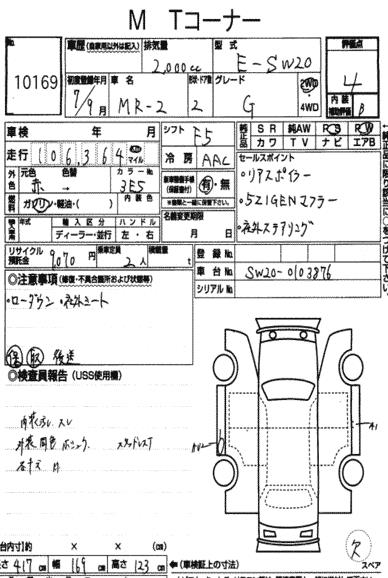 M Tコーナー
No.
10169
車歴 (自家用以外は記入)
排気量
2,000cc
型式
E-SW20
評価点
4
初度登録年月
7/9月
車名
MR-2
2
グレード
G
2WD
4WD
内装
補助評価
B
車検 年 月
シフト
F5
純正品
SR 純AW PS PW
カワ TV ナビ エアB
走行
106,364
km
マイル
冷房
AAC
セールスポイント
・リアスポイラー
・5ZIGENマフラー
・社外ステアリング
外色
元色 色替
赤 →
カラーNo.
3E5
有・無
燃料
ガソリン・軽油・( )
内装色
名義変更期限
月 日
年式
輸入区分
ハンドル
ディーラー・並行
左・右
リサイクル預託金
9,070円
乗車定員
2人
積載量
t
登録No.
車台No.
SW20-0103876
シリアルNo.
◎注意事項 (修復・不具合箇所および状態等)
・ローダウン ・社外シート
保 取 後送
◎検査員報告 (USS使用欄)
内装汚れ スレ
A1
欠
台内寸)約 × × (cm)
長さ 417 cm 幅 169 cm 高さ 123 cm
←(車検証上の寸法)
スペア